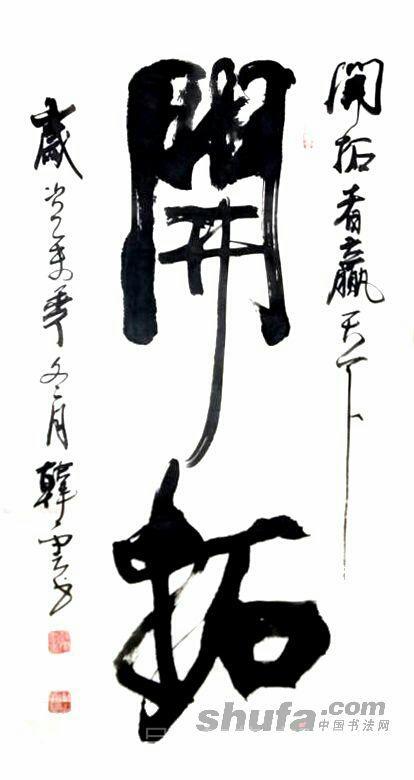 開拓者贏天下
開拓
歲当乙未年冬月韓雲书
shufa.com
中国书法网